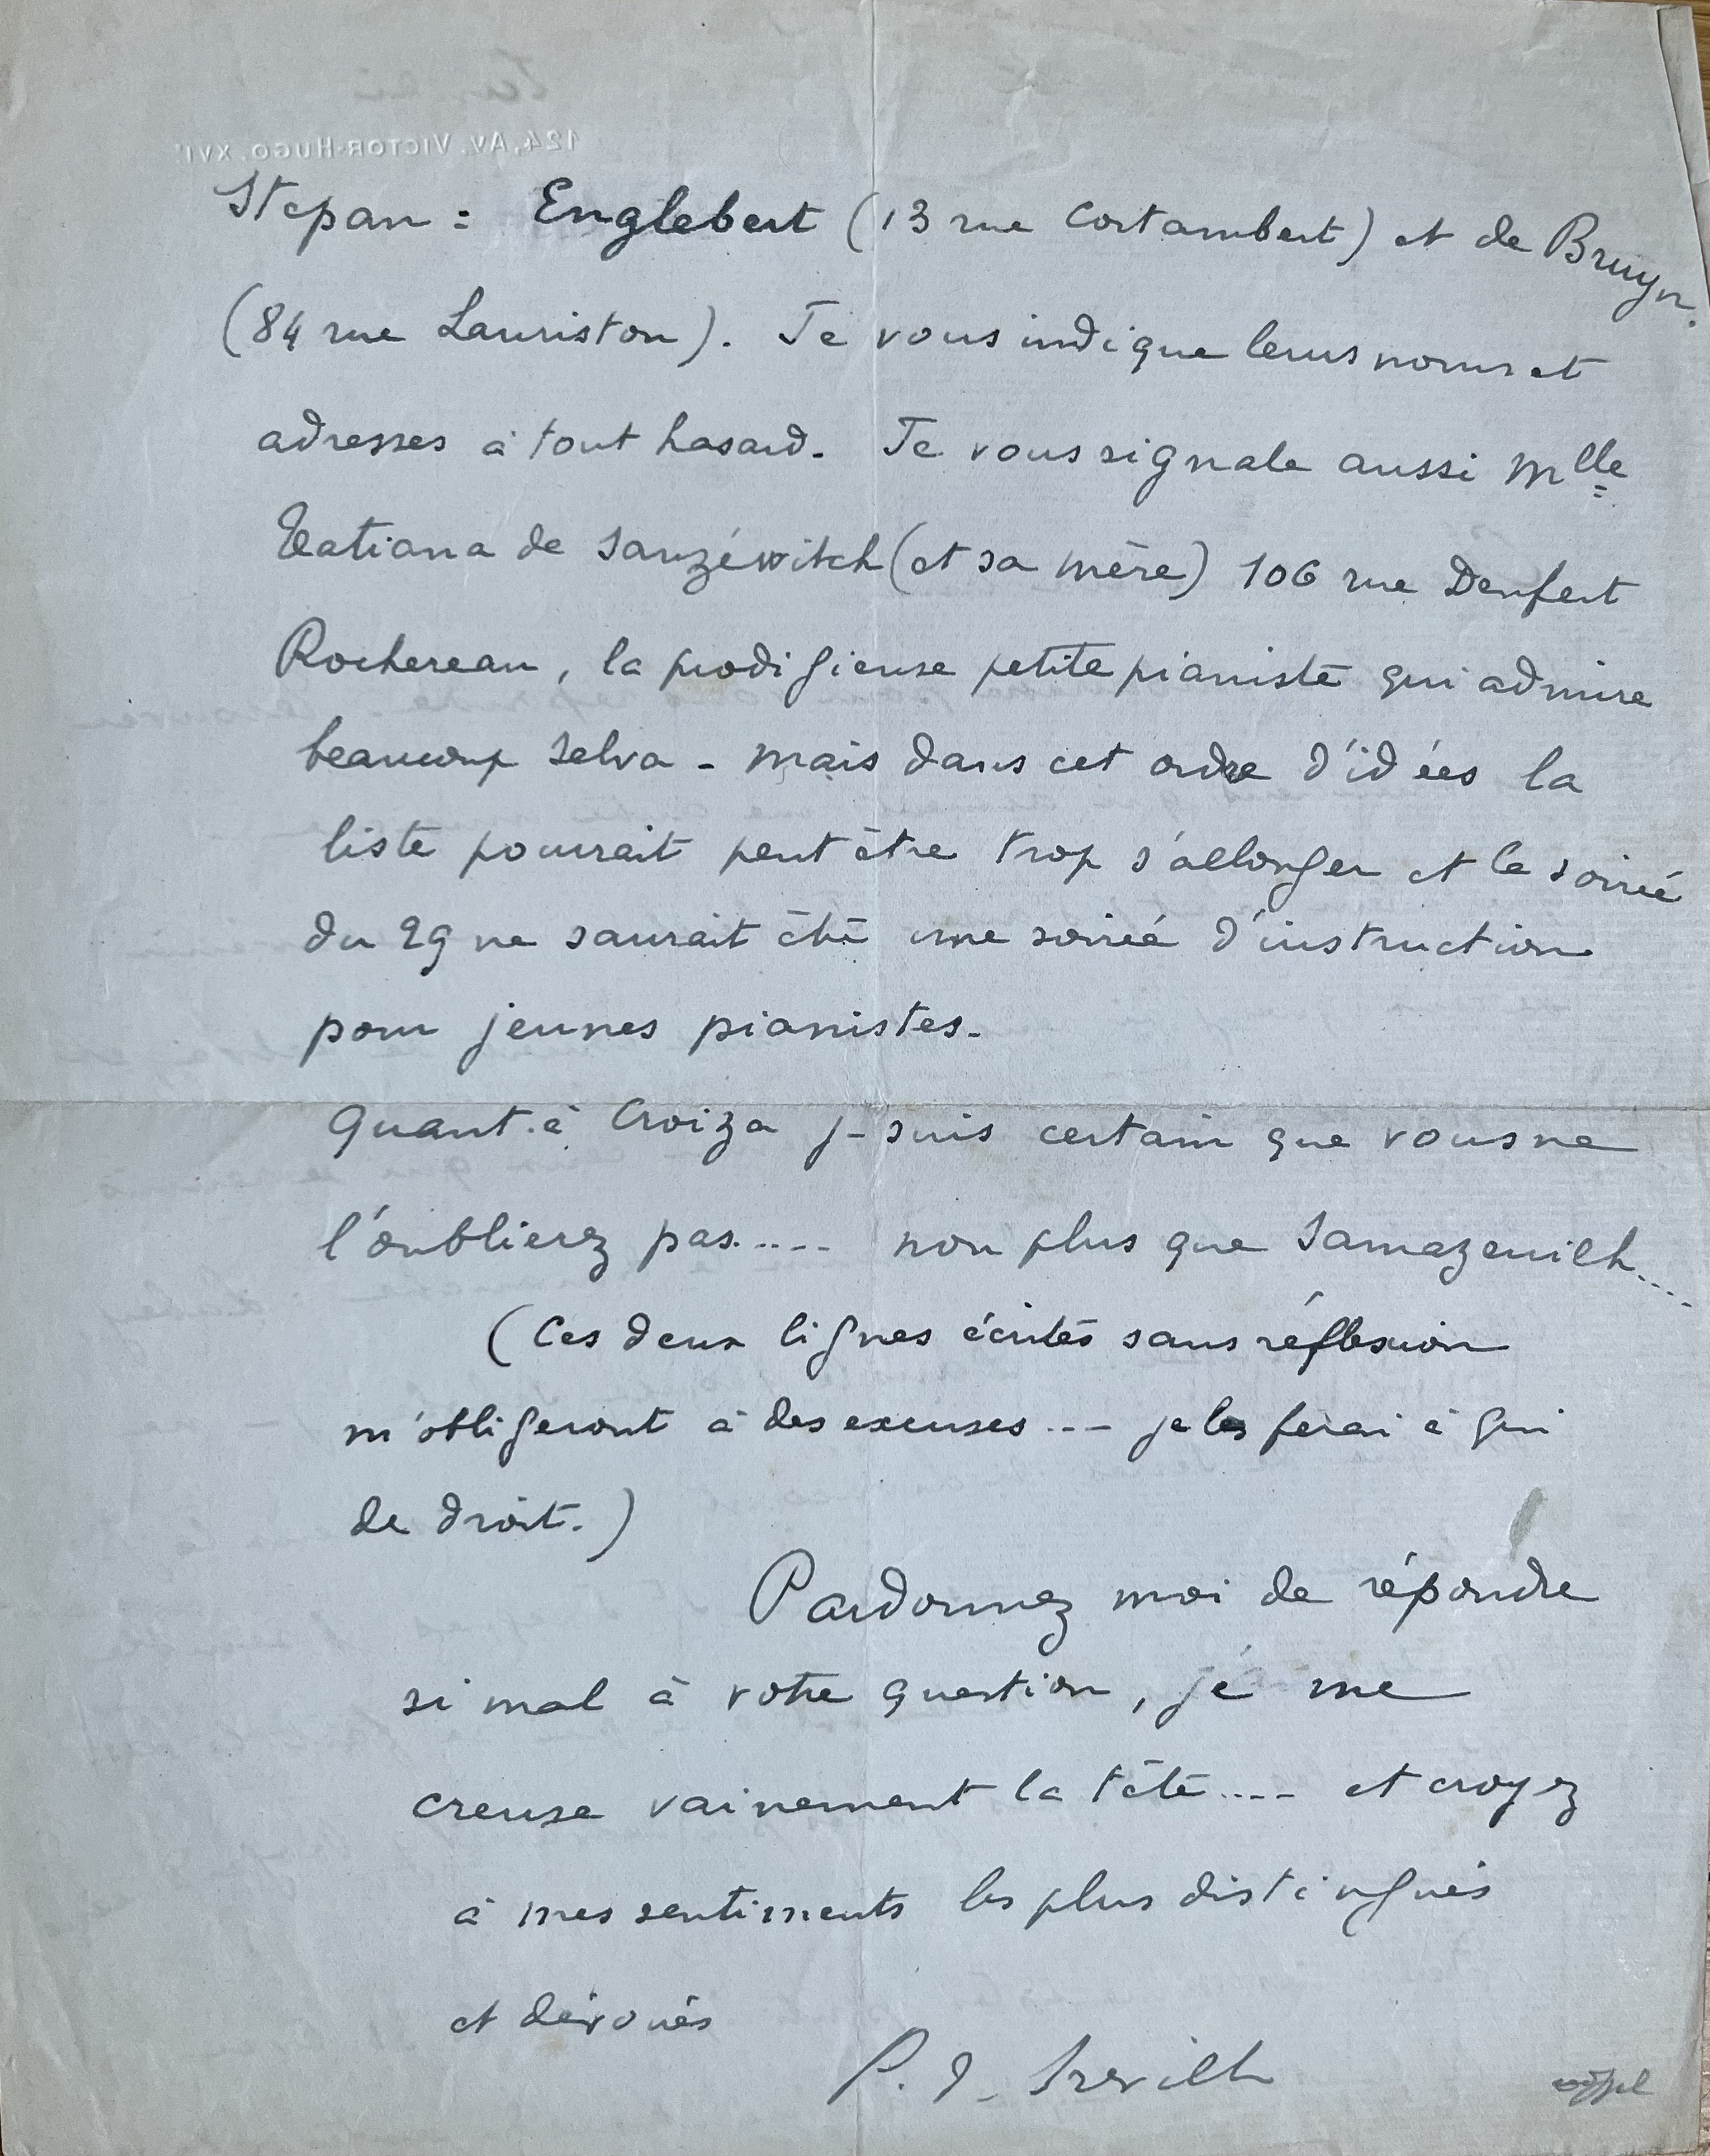 124, AV. VICTOR-HUGO. XVIᵉ
Stepan : Englebert (13 rue Cortambert) et de Bruyn.
(84 rue Lauriston). Je vous indique leurs noms et
adresses à tout hasard. Je vous signale aussi Mlle
Tatiana de Sanzévitch (et sa mère) 106 rue Denfert
Rochereau, la prodigieuse petite pianiste qui admire
beaucoup Selva - mais dans cet ordre d'idées la
liste pourrait peut être trop s'allonger et la soirée
du 29 ne saurait être une soirée d'instruction
pour jeunes pianistes.
Quant à Croiza je suis certain que vous ne
l'oublierez pas..... non plus que Samazeuilh....
(Ces deux lignes écrites sans réflexion
m'obligeront à des excuses... je les ferai à qui
de droit.)
Pardonnez moi de répondre
si mal à votre question, je me
creuse vainement la tête.... et croyez
à mes sentiments les plus distingués
et dévoués
P. d. Breville